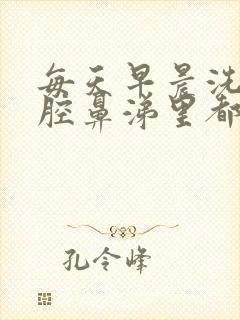 每天早晨洗
腔鼻涕里都
孔令峰